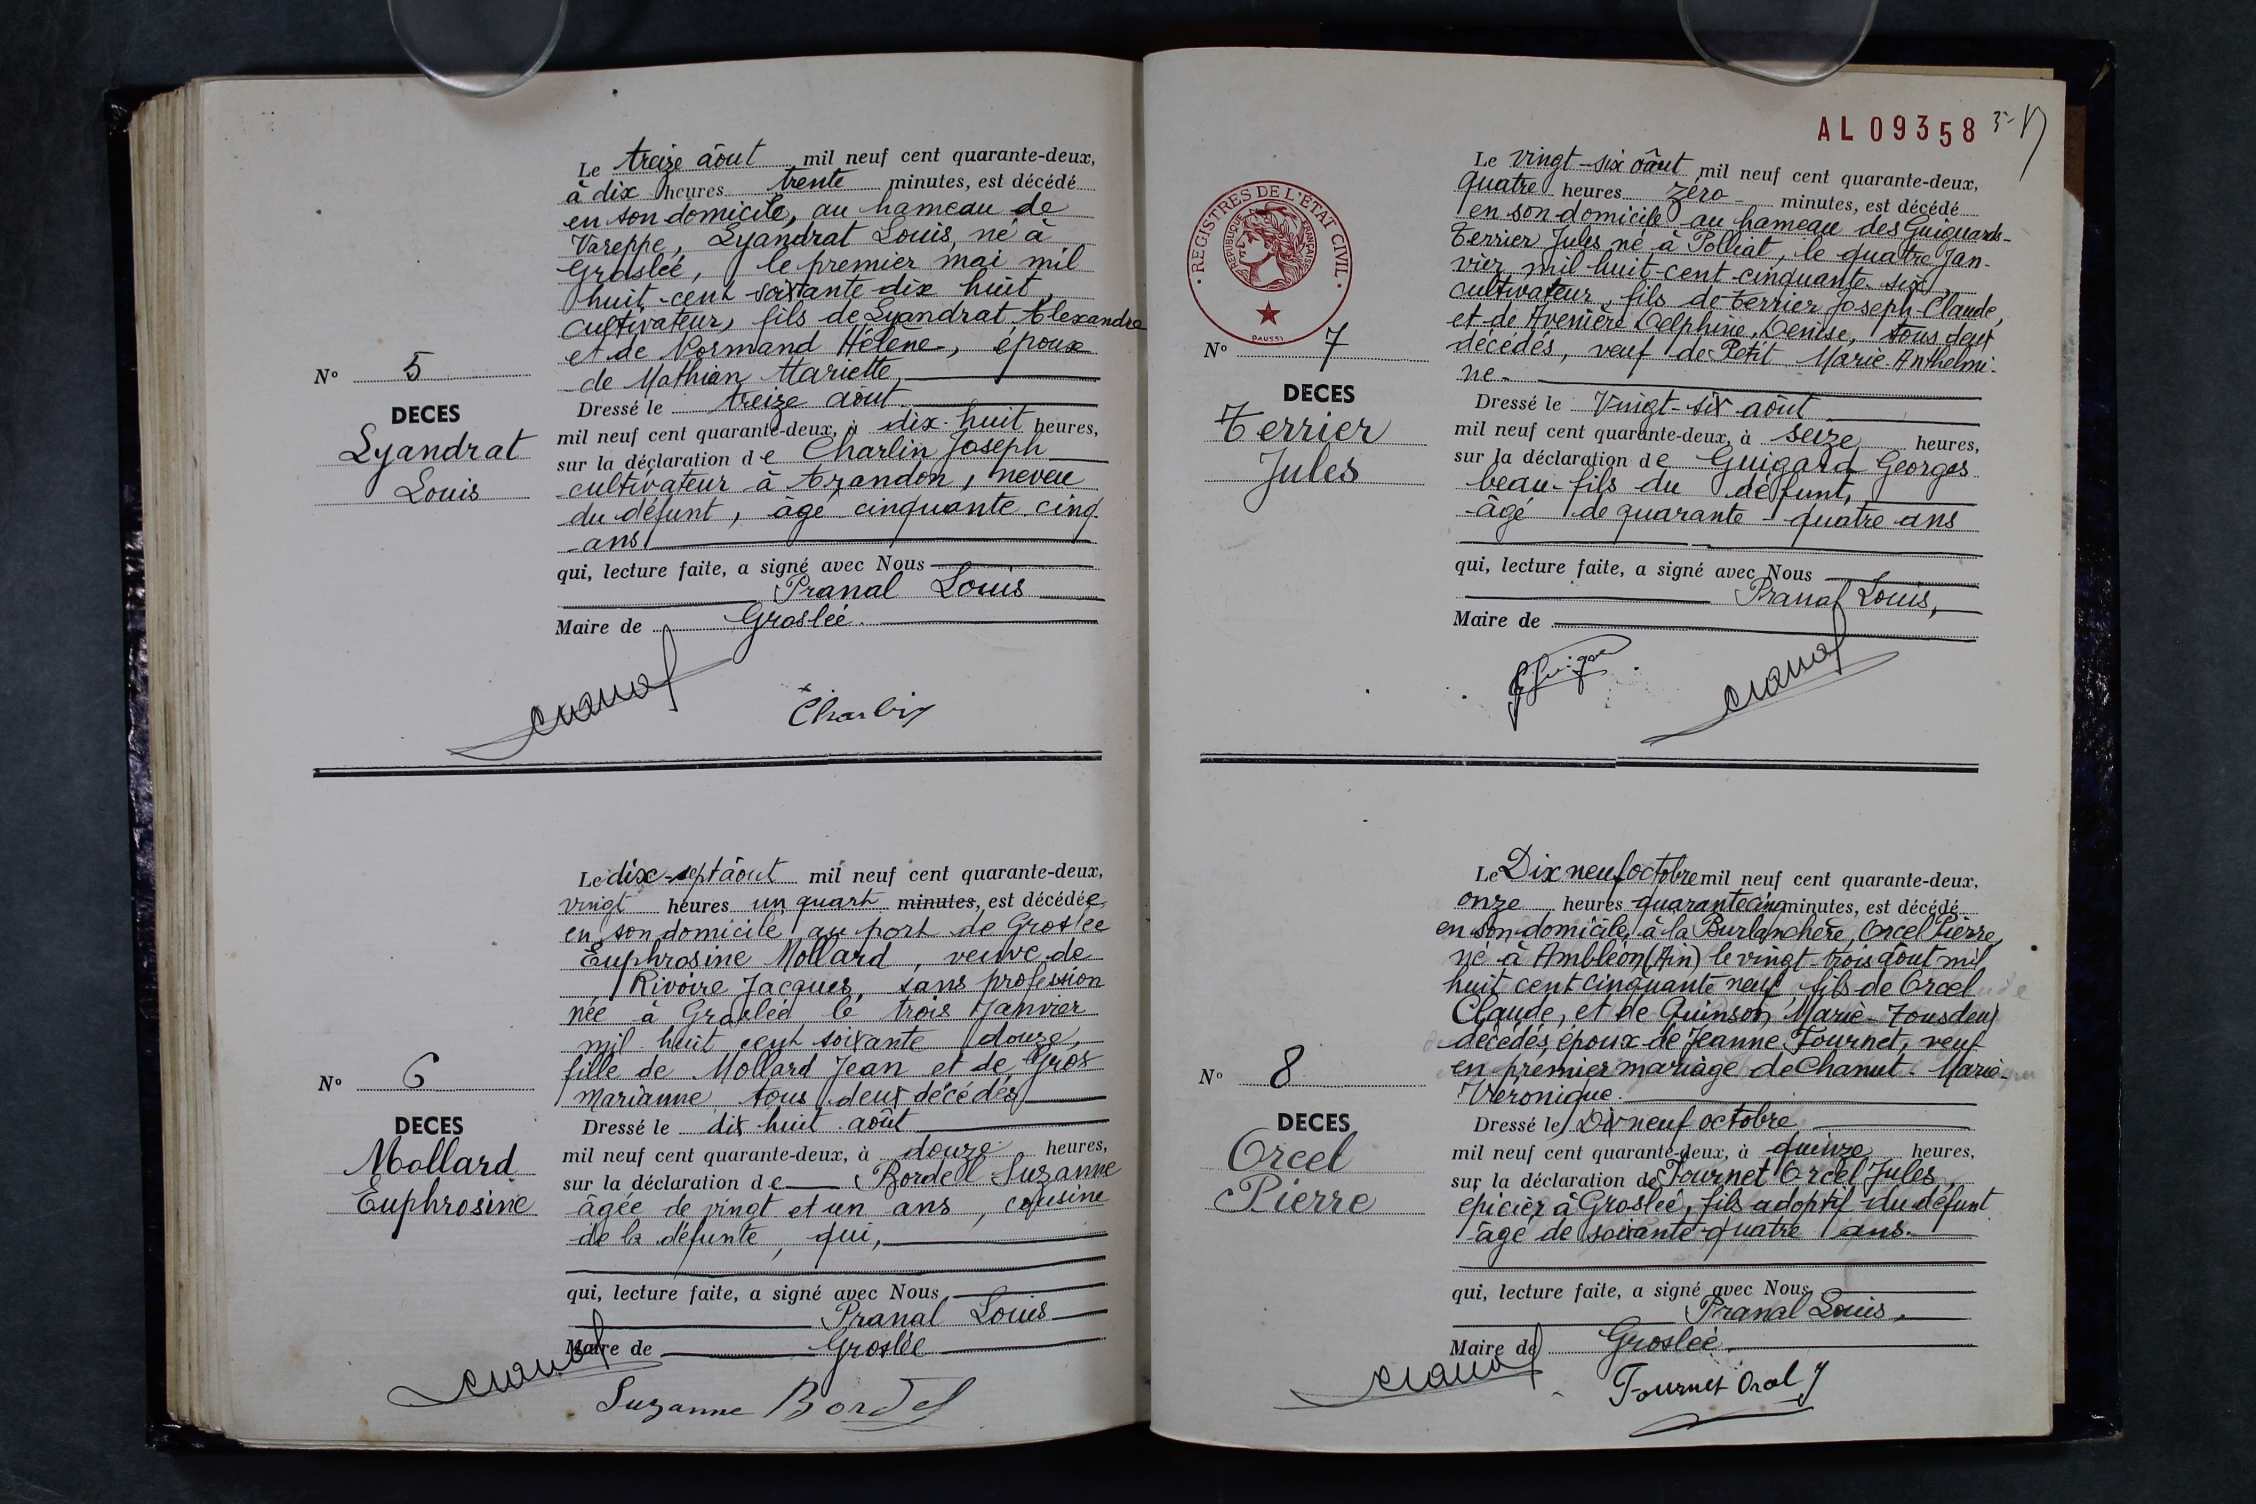 Le treize âout mil neuf cent quarante-deux,
à dix heures trente minutes, est décédé
en son domicile, au hameau de
Vareppe, Lyandrat Louis, né à
Groslée, le premier mai mil
huit-cent soixante dix huit,
cultivateur, fils de Lyandrat Alexandre
et de Normand Hélène-, époux
de Mathian Mariette
Dressé le treize aôut
mil neuf cent quarante-deux, à dix-huit heures,
sur la déclaration de Charlin Joseph
cultivateur à Arandon, neveu
du défunt, âgé cinquante cinq
ans
qui, lecture faite, a signé avec Nous
Pranal Louis
Maire de Groslée.
N° 5
DECES
Lyandrat
Louis
Charlin
Le dix-sept âout mil neuf cent quarante-deux,
vingt heures un quart minutes, est décédée
en son domicile au port de Groslée
Euphrosine Mollard, veuve de
Rivoire Jacques, sans profession
née à Groslée le trois Janvier
mil huit cent soixante douze,
fille de Mollard Jean et de Gros
Marianne tous deux décédés
Dressé le dix huit août
mil neuf cent quarante-deux, à douze heures,
sur la déclaration de Bordel Suzanne
âgée de vingt et un ans, cousine
de la défunte, qui,
qui, lecture faite, a signé avec Nous
Pranal Louis
Maire de Groslée
N° 6
DECES
Mollard
Euphrosine
Suzanne Bordel
AL 09358
REGISTRES DE L'ETAT CIVIL
REPUBLIQUE FRANÇAISE
DAUSSY
Le vingt-six oâut mil neuf cent quarante-deux,
quatre heures zéro minutes, est décédé
en son domicile au hameau des Guiguards-
Terrier Jules né à Polliat, le quatre Jan-
vier mil huit-cent-cinquante-six,
cultivateur, fils de Terrier Joseph-Claude,
et de Avenière Delphine, Denise, tous deux
décédés, veuf de Petit Marie-Anthelmi-
ne-
Dressé le Vingt-six aôut
mil neuf cent quarante-deux, à seize heures,
sur la déclaration de Guigard Georges
beau-fils du défunt,
âgé de quarante-quatre ans
qui, lecture faite, a signé avec Nous
Pranal Louis,
Maire de
N° 7
DECES
Terrier
Jules
Le Dix neuf octobre mil neuf cent quarante-deux,
onze heures quarante cinq minutes, est décédé
en son domicile, à la Burlanchère, Orcel Pierre,
né à Ambléon (Ain) le vingt-trois âout mil
huit cent cinquante neuf, fils de Orcel
Claude, et de Quinson Marie-Tous deux
décédés, époux de Jeanne Tournet, veuf
en premier mariage de Chanut-Marie-
Véronique.
Dressé le Dix neuf octobre
mil neuf cent quarante-deux, à quinze heures,
sur la déclaration de Tournet Orcel Jules,
épicier à Groslée, fils adoptif du défunt
âgé de soixante-quatre ans.
qui, lecture faite, a signé avec Nous
Pranal Louis,
Maire de Groslée.
N° 8
DECES
Orcel
Pierre
Tournet Orcel J